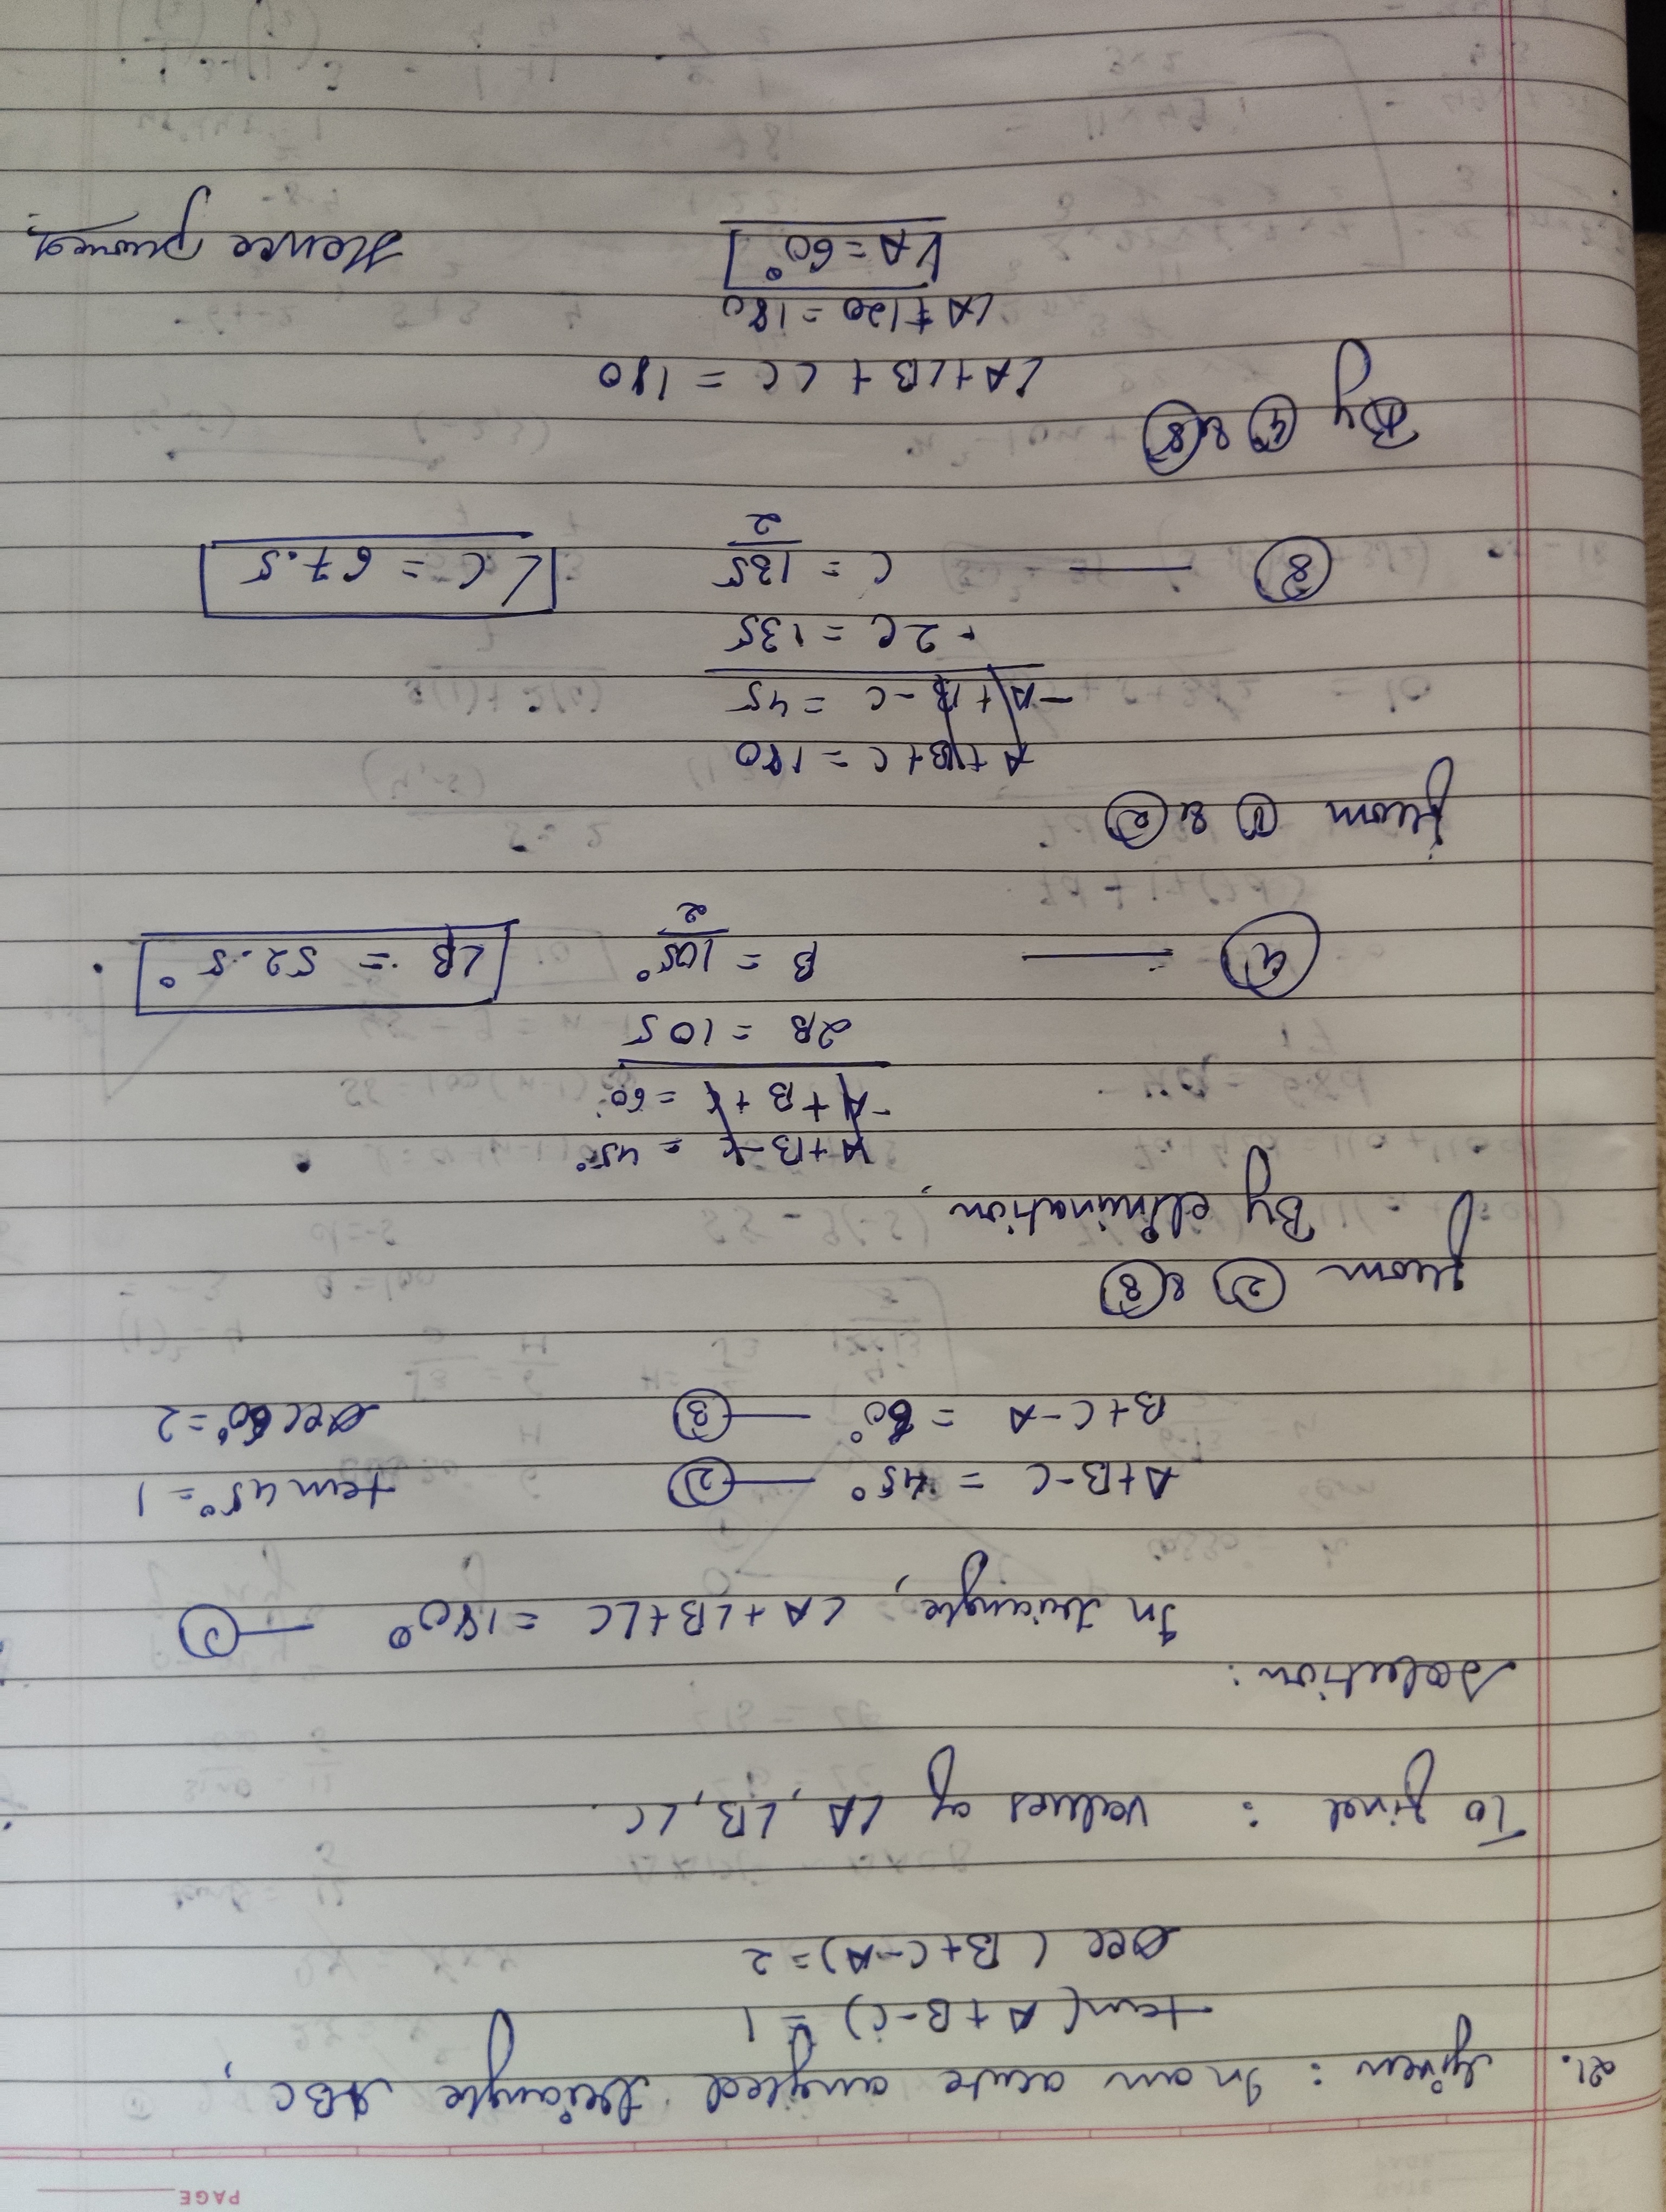 PAGE
21. Given : In an acute angled triangle ABC,
tan(A+B-C) = 1
sec(B+C-A)=2
To find : values of ∠A, ∠B, ∠C.
Solution:
In triangle, ∠A+∠B+∠C =180° — ①
A+B-C = 45° — ② tan45°=1
B+C-A = 60° — ③ sec60°=2
From ② & ③
By elimination,
A+B-C = 45°
-A+B+C = 60°
2B = 105
④ — B = 105°/2 ∠B = 52.5°
From ① & ②
A+B+C = 180
-A+B-C = 45
2C = 135
⑧ — C = 135/2 ∠C = 67.5
By ④ & ⑧
∠A+∠B+∠C = 180
∠A+120=180
∠A=60° Hence proved.